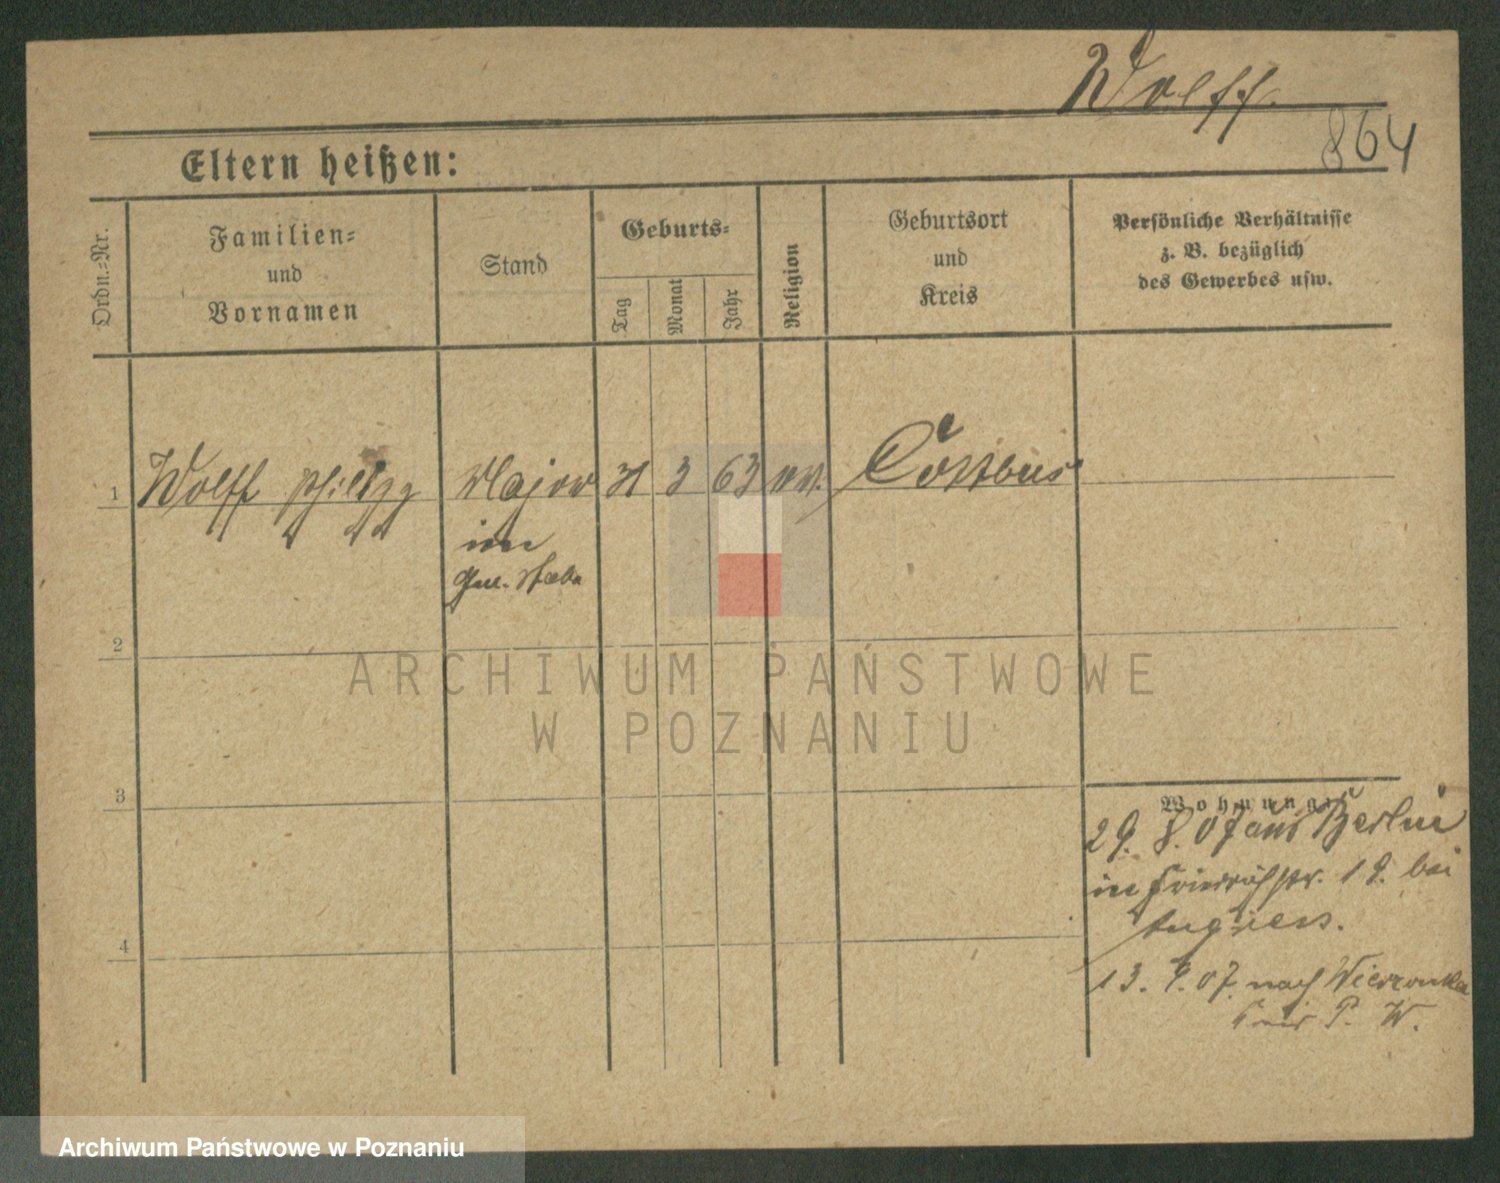 Wolff.
864
Eltern heißen:
Ordn.=Nr.
Familien=
und
Vornamen
Stand
Geburts=
Tag
Monat
Jahr
Religion
Geburtsort
und
Kreis
Persönliche Verhältnisse
z. B. bezüglich
des Gewerbes usw.
1 Wolff Philipp Major 31 3 63 ev. Cottbus
im
Gen. Stabe
2
3
4
Wohnung:
29. 8. 07 aus Berlin
in Friedrichstr. 19. bei
13. 9. 07. nach Wierzonka
Kreis P. W.
ARCHIWUM PAŃSTWOWE
W POZNANIU
Archiwum Państwowe w Poznaniu